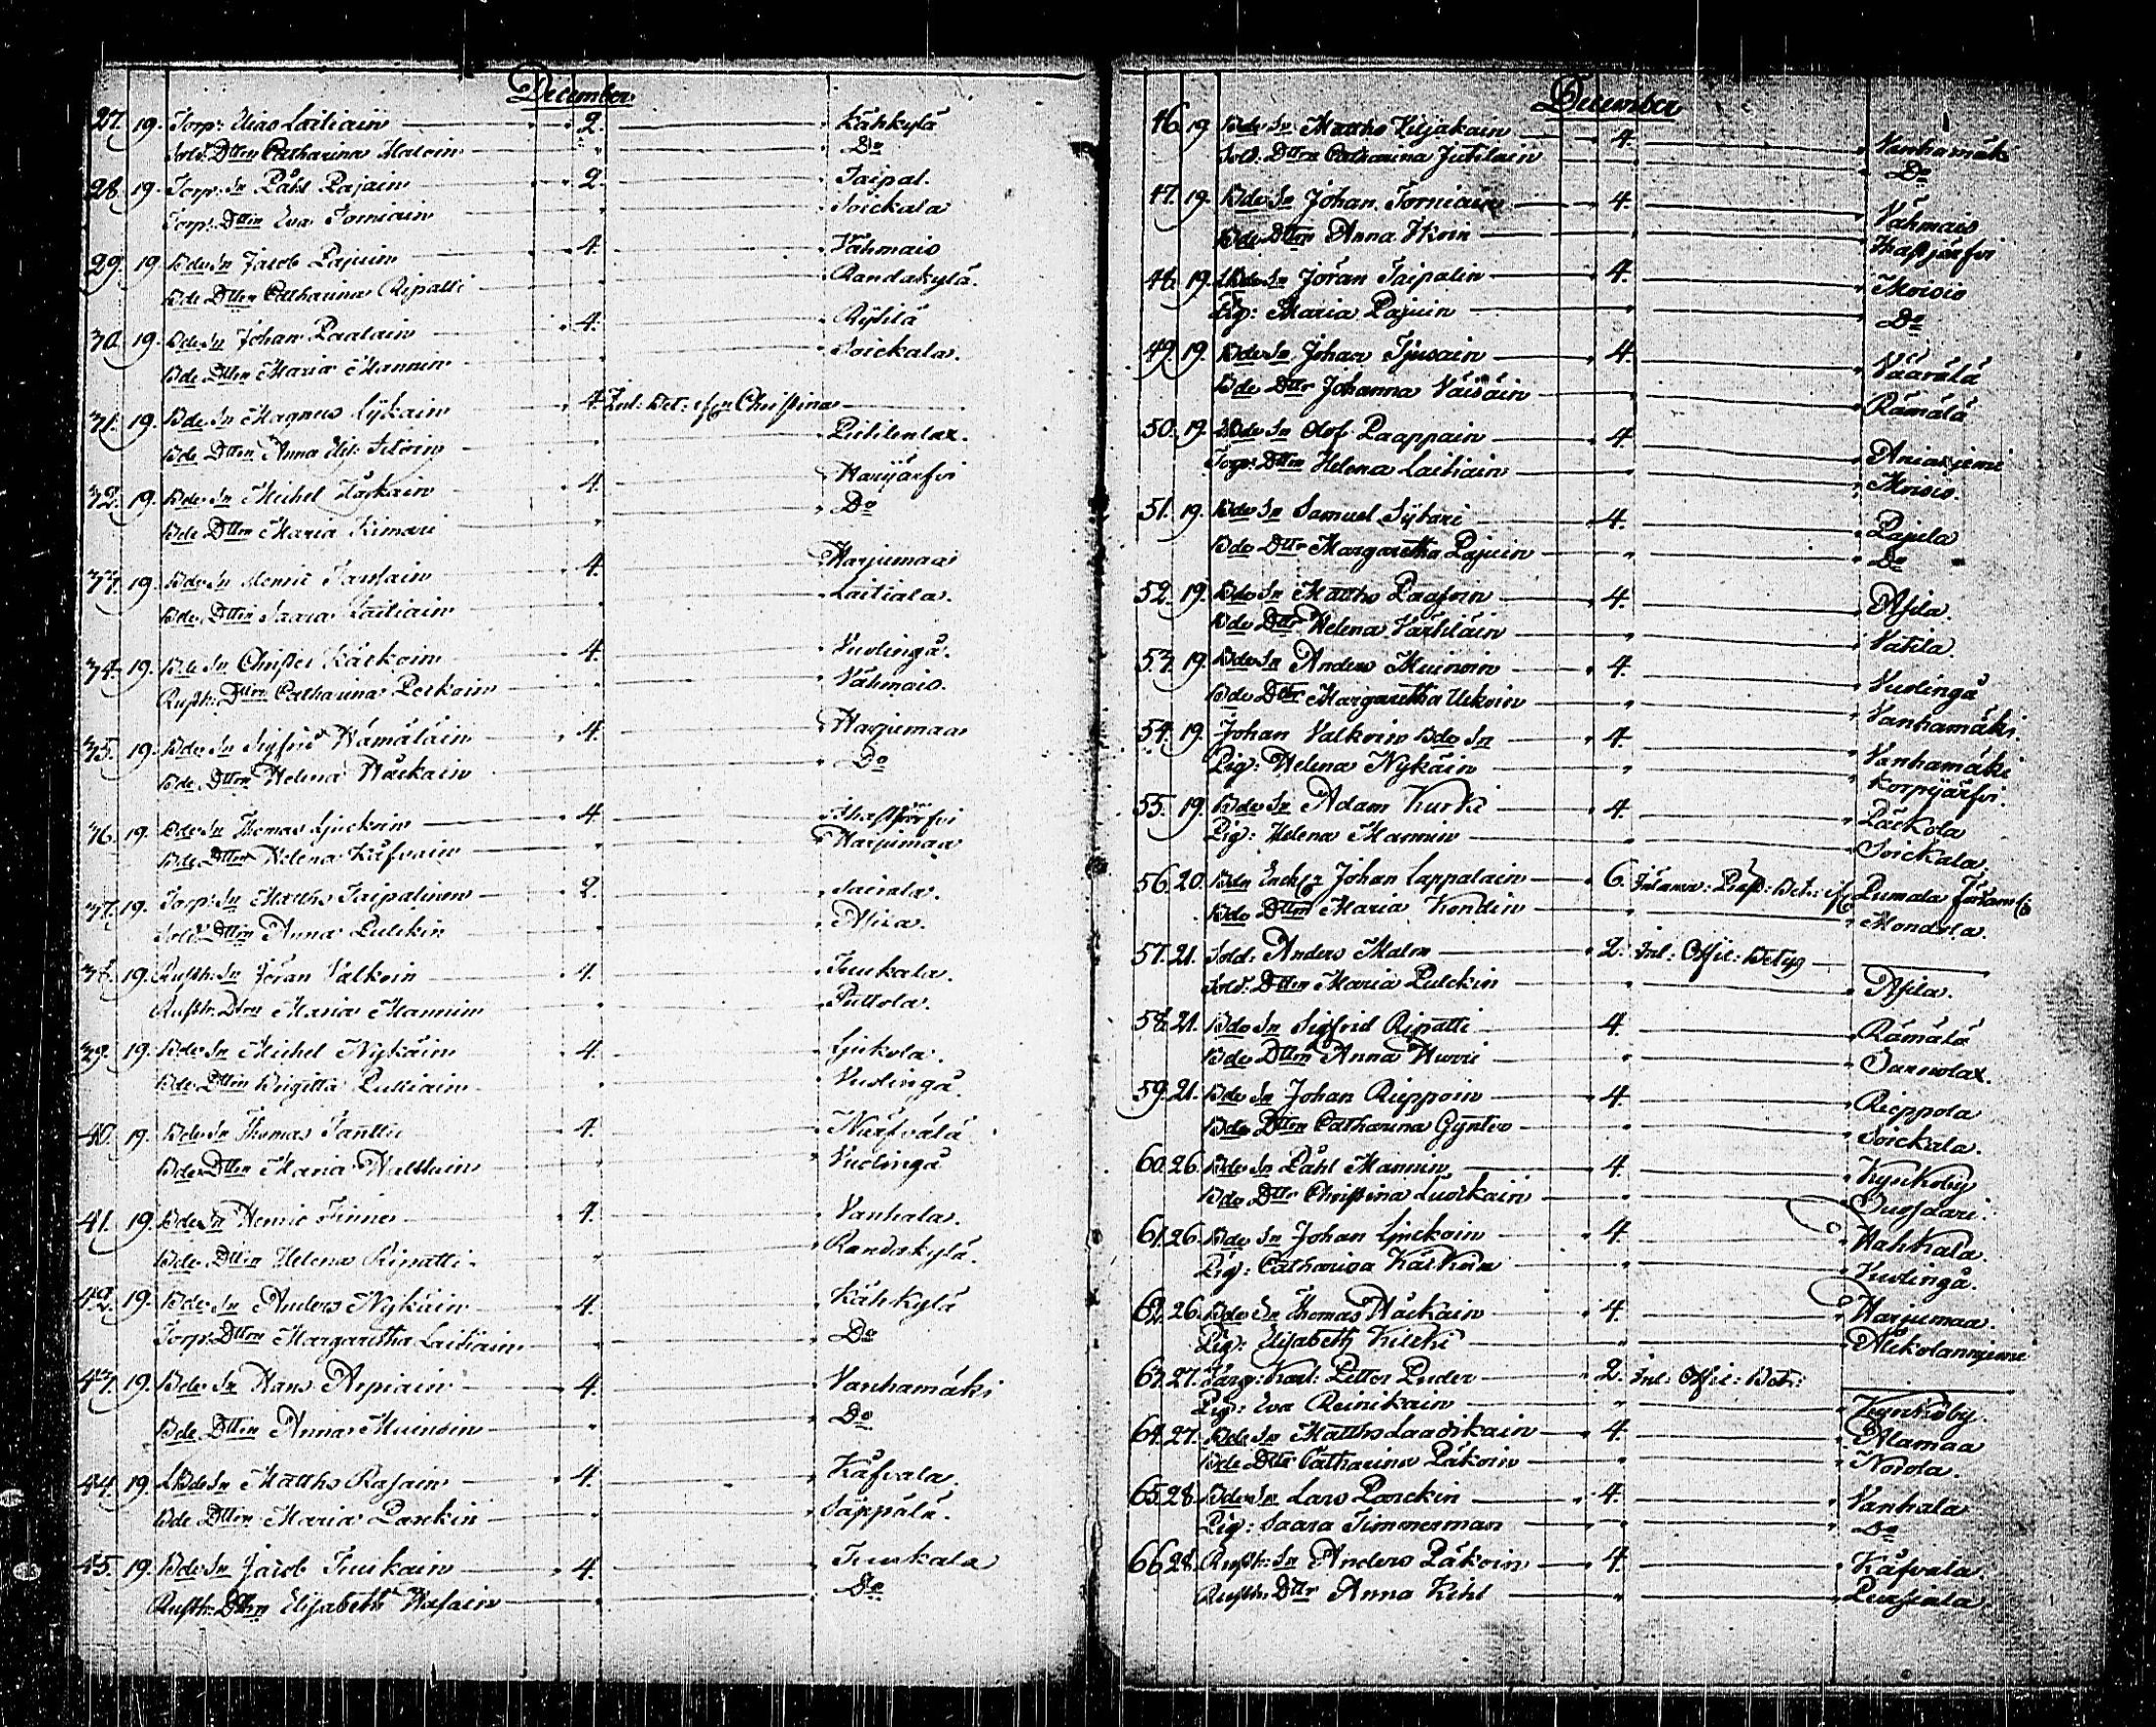 December
27. 19. Torp: Elias Laitiain 2. Kähkylä
Sold: Dttrn Catharina Haloin Do
28. 19. Torp: Sn Påhl Pajain 2. Taipal.
Torp: Dttrn Eva Torniain Soickala
29. 19 Bde Sn Jacob Pajuin 4. Vahmais
Bde Dttrn Catharina Ripatti Randakylä.
30. 19. Bde Sn Johan Paalain 4. Ryhilä
Bde Dttrn Maria Mannin Soickala.
31. 19. Bde Sn Magnus Lykain 4. Inl: Bet: Christina
Bde Dttrn Anna Pitilenlax.
32. 19. Bde Sn Michel Häckäin 4. Harjärfvi
Bde Dttrn Maria Kimari Do
33. 19. Bde Sn Henric 4. Harjumaa
Bde Dttrn Saara Laitiain Laitiala.
34. 19. Bde Sn Christer Käckoin 4. Vuolingå.
Rusth: Dttrn Catharina Peckoin Vahmais.
35. 19. Bde Sn Sigfrid Hämäläin 4. Harjumaa
Bde Dttrn Helena Häckäin Do
36. 19. Bde Sn Thomas Ljuckoin 4
Bde Dttrn Helena Käfvain Harjumaa
37. 19. Torp: Sn Matths Taipalinen 2.
Sold: Dttrn Anna Pulckin Asila.
38. 19. Rusth: Sn Jöran Valkoin 4. Tuukala.
Rusth: Dttrn Maria Mannin Puttola.
39. 19. Bde Sn Michel Nykäin 4. Ljukola.
Bde Dttrn Brigitta Pulliain Vuolingå
40. 19. Bde Sn Thomas Tanttu 4. Närfvälä
Bde Dttrn Maria Vuolingå
41. 19. Bde Sn Henric Finne 4. Vanhala.
Bde Dttrn Helena Ripatti Randakylä.
42. 19. Bde Sn Anders Nykäin 4. Kähkylä
Torp: Dttrn Margaretha Laitiain Do
43. 19. Bde Sn Hans Arpiain 4. Vanhamäki
Bde Dttrn Anna Muinoin Do
44. 19. Bde Sn Matths Rasain 4. Käfvala.
Bde Dttrn Maria Parckin Säppälä.
45. 19. Bde Sn Jacob Tuukain 4. Tuukala
Rusth: Dttrn Elisabeth Hasain Do
December
46. 19 Bde Sn Matths Kiljakain 4. Vanhamäki
Sold: Dttrn Catharina Jutilain Do
47. 19. Bde Sn Johan Torniain 4. Vahmais
Bde Dttrn Anna Ikoin Thastjärfvi
48. 19. Bde Sn Jöran Taipalin 4. Moisio
Pig: Maria Pajuin Do
49. 19. Bde Sn Johan Tjusain 4. Väärälä
Bde Dttr Johanna Väisäin Rämälä
50. 19. Bde Sn Olof Paappain 4. Aniasjemi
Torp: Dttrn Helena Laitiain Moisio.
51. 19. Bde Sn Samuel Sylvari 4. Pajula
Bde Dttr Margaretha Pajuin Do
52. 19. Bde Sn Matths Paasoin 4. Asila.
Bde Dttr Helena Vartiläin Vatila.
53. 19. Bde Sn Anders Muinoin 4. Vuolingå
Bde Dttr Margaretha Uckoin Vanhamäki.
54. 19. Johan Valkoin Bde Sn 4. Vanhamäki
Pig: Helena Nykäin Korpijärfvi.
55. 19. Bde Sn Adam Kurki 4. Päckola
Pig: Helena Mannin Soickala.
56. 20. Bdn Enckl. Johan Lappalain 6. Pumala
Bde Dttrn Maria Kondin Mondola.
57. 21. Sold: Anders Malm 2. Inl: Offic: Betyg
Sold: Dttrn Maria Pulckin Asila.
58. 21. Bde Sn Sigfrid Ripatti 4. Rämälä
Bde Dttrn Anna Hurri Sarinolax.
59. 21. Bde Sn Johan Rieppoin 4. Rieppola
Bde Dttrn Catharina Gynter Soickala.
60. 26. Bde Sn Påhl Mannin 4. Kynkoby
Bde Dttr Christina Luockain
61. 26. Bde Sn Johan Ljuckoin 4. Hahkala.
Pig: Catharina Käckoin Vuolingå.
62. 26. Bde Sn Thomas Häckäin 4. Harjumaa.
Pig: Elisabeth Kilcki Alckolanniemi
63. 27. Farg: Karl Petter Ender 2. Inl: Offic: Bet:
Pig: Eva Reinikain Kynkoby.
64. 27. Bde Sn Matths Laadikain 4. Alamaa
Bde Dttr Catharina Päkoin Norola.
65. 28. Bde Sn Lars Parckin 4. Vanhala
Pig: Saara Timmerman Do
66. 28. Rusth: Sn Anders Päkoin 4. Käfvala
Rusth: Dttr Anna Kihl Pursiala